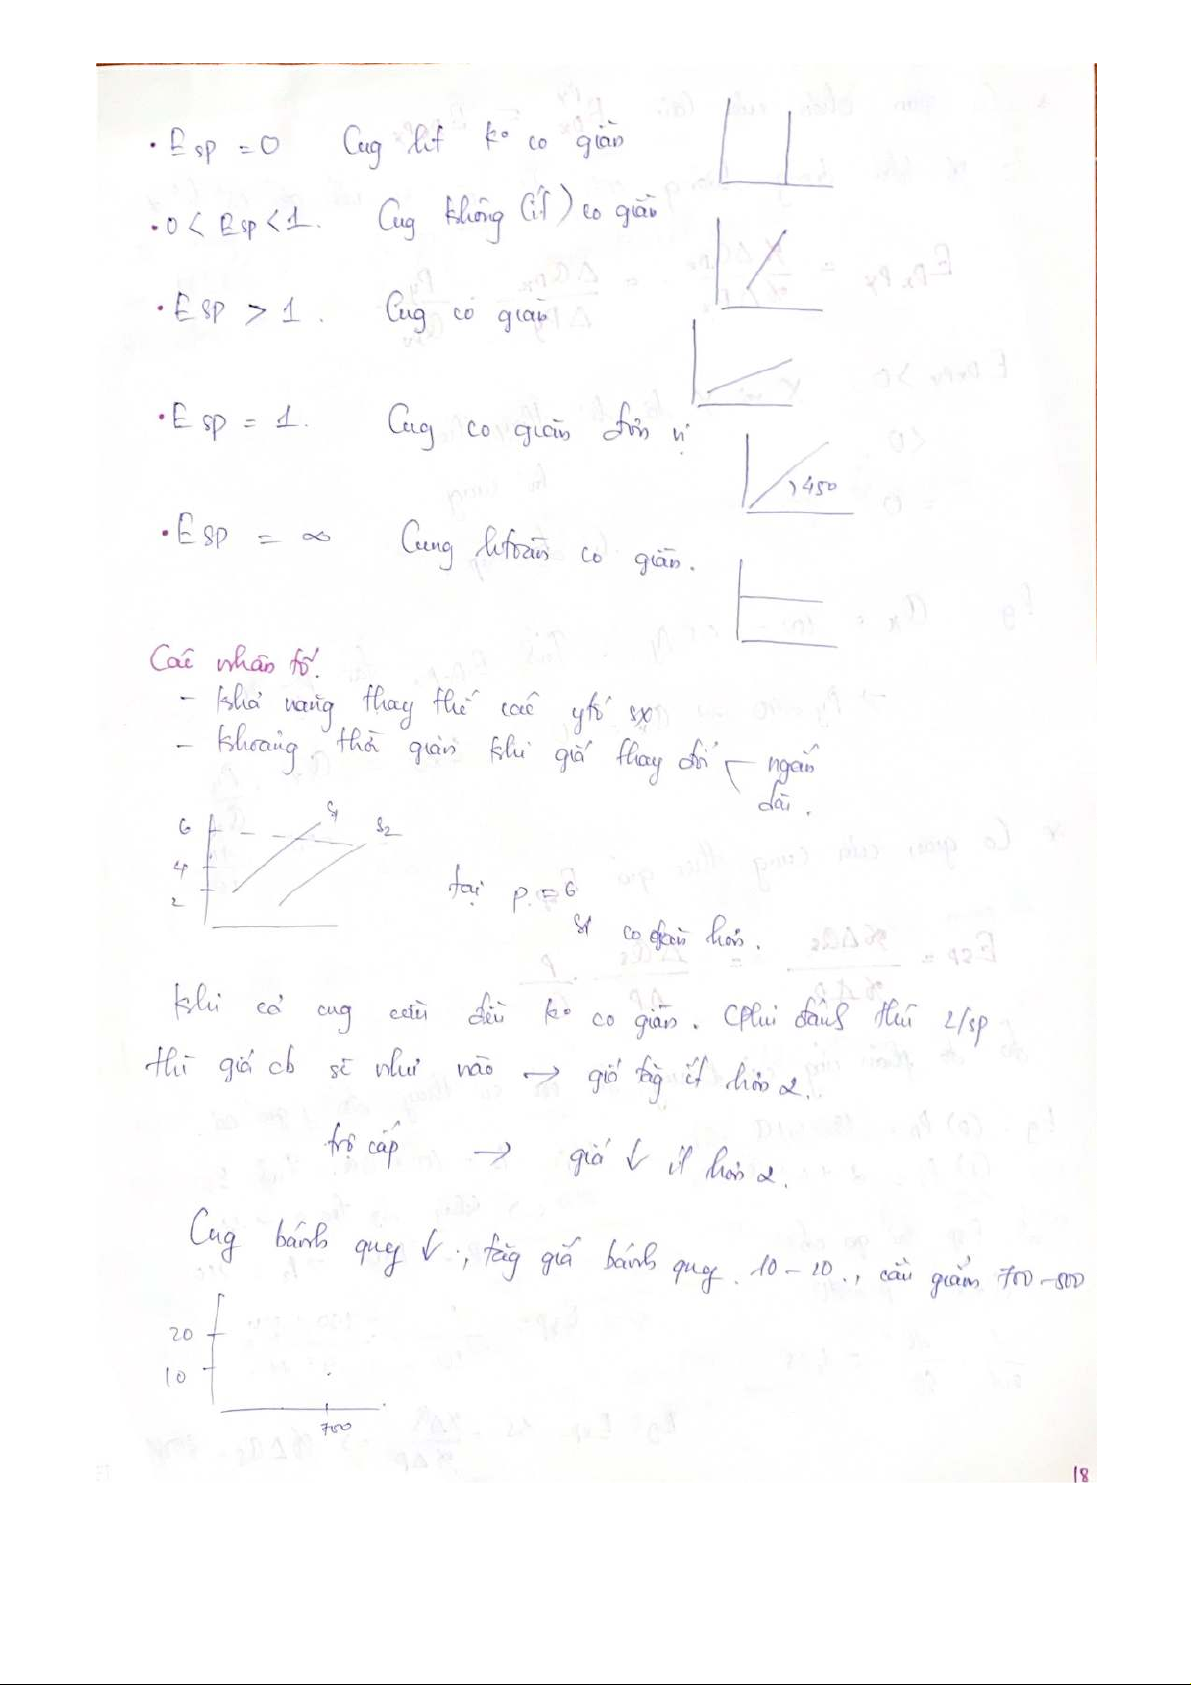 • Esp = 0 Cug ht k° co giãn
• 0 < Esp < 1. Cug không (ít) co giãn
• Esp > 1. Cug co giãn
• Esp = 1. Cug co giãn đơn vị
)450
• Esp = ∞ Cung htoàn co giãn.
Các nhân tố.
- Khả năng thay thế các ytố sx
- Khoảng thời gian khi giá thay đổi ngắn
dài.
6 S1 S2
4
2
tại p = 6
S1 co giãn hơn.
Khi cả cug cầu đều k° co giãn. CPhủ đánh thuế 2/sp
thì giá cb sẽ như nào → giá tăg ít hơn 2.
trợ cấp → giá ↓ ít hơn 2.
Cug bánh quy ↓, tăg giá bánh quy 10 - 20, cầu giảm 700 - 500
20
10
700
18